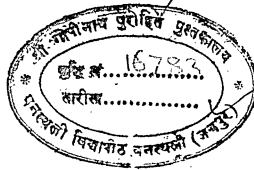 श्री गोपीनाथ पुरोहित पुस्तकालय
वृद्धि नं. 16783
तारीख...............
वनस्थली विद्यापीठ वनस्थली (जयपुर)